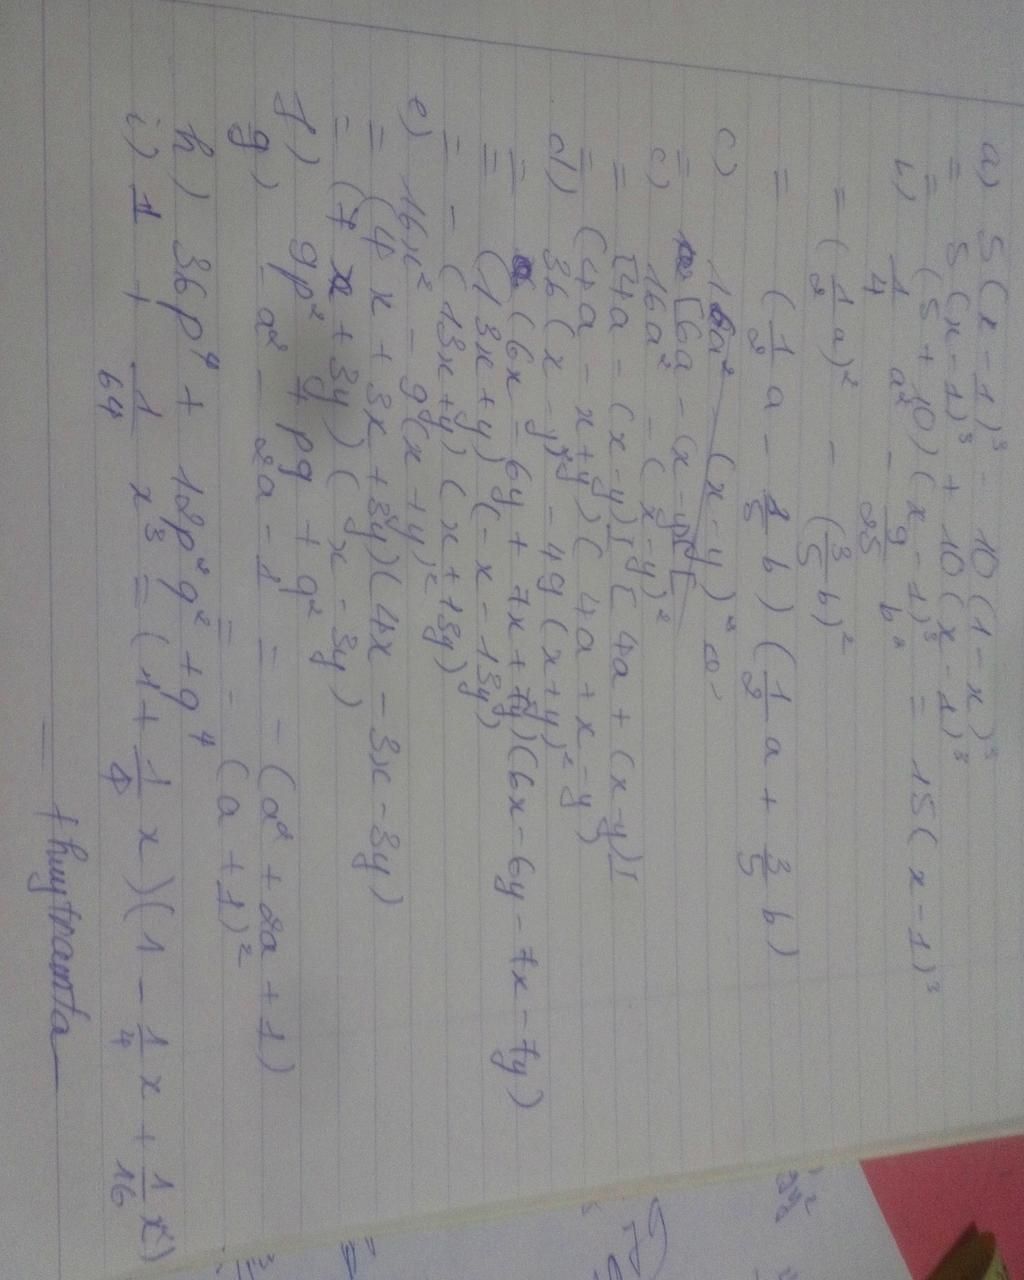 a) 5(x-1)³ - 10(1-x)³
= 5(x-1)³ + 10(x-1)³
= (5+10)(x-1)³ = 15(x-1)³
b) 1/4 a² - 9/25 b²
= (1/2 a)² - (3/5 b)²
= (1/2 a - 3/5 b)(1/2 a + 3/5 b)
c) 16a² (x-y)²
= [6a - (x-y)][
c) 16a² - (x-y)²
= [4a - (x-y)][4a + (x-y)]
= (4a - x+y)(4a + x-y)
d) 36(x-y)² - 49(x+y)²
= (6x - 6y + 7x + 7y)(6x - 6y - 7x - 7y)
= (13x+y)(-x-13y)
= - (13x+y)(x+13y)
e) 16x² - 9(x+y)²
= (4x + 3x + 3y)(4x - 3x - 3y)
= (7x + 3y)(x - 3y)
f) 9p² + pq + q²
g) - a² - 2a - 1 = - (a² + 2a + 1)
= - (a + 1)²
h) 36p⁴ + 12p²q² + q⁴
i) 1 + 1/64 x³ = (1 + 1/4 x)(1 - 1/4 x + 1/16 x²)
thuytramta